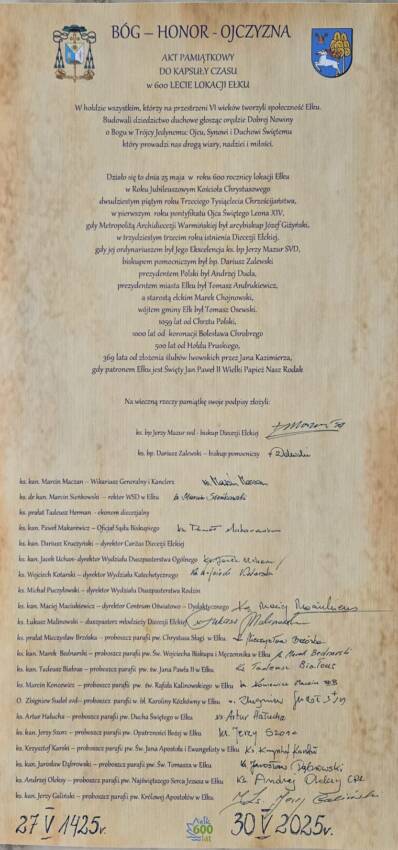 BÓG – HONOR - OJCZYZNA
AKT PAMIĄTKOWY
DO KAPSUŁY CZASU
W 600 LECIE LOKACJI EŁKU
W hołdzie wszystkim, którzy na przestrzeni VI wieków tworzyli społeczność Ełku.
Budowali dziedzictwo duchowe głosząc orędzie Dobrej Nowiny
o Bogu w Trójcy Jedynemu Ojcu, Synowi i Duchowi Świętemu
który prowadzi nas drogą wiary, nadziei i miłości.
Działo się to dnia 25 maja w roku 600 rocznicy lokacji Ełku
w Roku Jubileuszowym Kościoła Chrystusowego
dwudziestym piątym roku Trzeciego Tysiąclecia Chrześcijaństwa,
w pierwszym roku pontyfikatu Ojca Świętego Leona XIV,
gdy Metropolitą Archidiecezji Warmińskiej był arcybiskup Józef Giżyński,
w trzydziestym trzecim roku istnienia Diecezji Ełckiej,
gdy jej ordynariuszem był Jego Ekscelencja ks. bp Jerzy Mazur SVD,
biskupem pomocniczym był bp. Dariusz Zalewski
prezydentem Polski był Andrzej Duda,
prezydentem miasta Ełku był Tomasz Andrukiewicz,
a starostą ełckim Marek Chojnowski,
wójtem gminy Ełk był Tomasz Osewski.
1059 lat od Chrztu Polski,
1000 lat od koronacji Bolesława Chrobrego
500 lat od Hołdu Pruskiego,
369 lata od złożenia ślubów lwowskich przez Jana Kazimierza,
gdy patronem Ełku jest Święty Jan Paweł II Wielki Papież Nasz Rodak
Na wieczną rzeczy pamiątkę swoje podpisy złożyli:
ks. bp Jerzy Mazur svd - biskup Diecezji Ełckiej +JMazur
ks. bp. Dariusz Zalewski – biskup pomocniczy + DZalewski
ks. kan. Marcin Maczan – Wikariusz Generalny i Kanclerz ks. Marcin Maczan
ks. dr kan. Marcin Sieńkowski – rektor WSD w Ełku ks. Marcin Sieńkowski
ks. prałat Tadeusz Herman - ekonom diecezjalny
ks. kan. Paweł Makarewicz – Oficjał Sądu Biskupiego ks. Paweł Makarewicz
ks. kan. Dariusz Kruczyński – dyrektor Caritas Diecezji Ełckiej
ks. kan. Jacek Uchan- dyrektor Wydziału Duszpasterstwa Ogólnego ks. Jacek Uchan
ks. Wojciech Kotarski – dyrektor Wydziału Katechetycznego ks. Wojciech Kotarski
ks. Michał Puczyłowski – dyrektor Wydziału Duszpasterstwa Rodzin
ks. kan. Maciej Maciukiewicz – dyrektor Centrum Oświatowo – Dydaktycznego ks. Maciej
ks. Łukasz Malinowski – duszpasterz młodzieży Diecezji Ełckiej ks. Łukasz Malinowski
ks. prałat Mieczysław Brzóska – proboszcz parafii pw. Chrystusa Sługi w Ełku ks. Mieczysław Brzóska
ks. kan. Marek Bednarski – proboszcz parafii pw. Św. Wojciecha Biskupa i Męczennika w Ełku ks. Marek Bednarski
ks. kan. Tadeusz Białous – proboszcz parafii pw. św. Jana Pawła II w Ełku ks. Tadeusz Białous
ks. Marcin Koncewicz – proboszcz parafii pw. św. Rafała Kalinowskiego w Ełku ks. Koncewicz Marcin
O. Zbigniew Sudoł svd – proboszcz parafii w. bł. Karoliny Kózkówny w Ełku o. Zbigniew Sudoł
ks. Artur Hałucha – proboszcz parafii pw. Ducha Świętego w Ełku ks. Artur Hałucha
ks. kan. Jerzy Szorc – proboszcz parafii pw. Opatrzności Bożej w Ełku ks. Jerzy Szorc
ks. Krzysztof Karski – proboszcz parafii pw. Św. Jana Apostoła i Ewangelisty w Ełku ks. Krzysztof Karski
ks. kan. Jarosław Dąbrowski – proboszcz parafii pw. Św. Tomasza w Ełku ks. Jarosław Dąbrowski
ks. Andrzej Oleksy – proboszcz parafii pw. Najświętszego Serca Jezusa w Ełku ks. Andrzej Oleksy
ks. kan. Jerzy Galiński – proboszcz parafii pw. Królowej Apostołów w Ełku ks. Jerzy Galiński
27 V 1425r. ełk 600 lat 30 V 2025r.